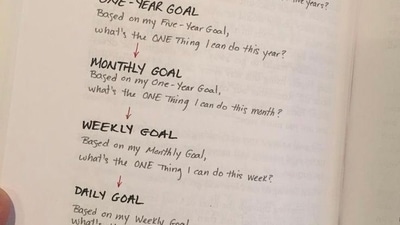 five years?
ONE-YEAR GOAL
Based on my Five-Year Goal,
what's the ONE Thing I can do this year?
MONTHLY GOAL
Based on my One-Year Goal,
what's the ONE Thing I can do this month?
WEEKLY GOAL
Based on my Monthly Goal,
what's the ONE Thing I can do this week?
DAILY GOAL
Based on my Weekly Goal
what's the ONE Thing